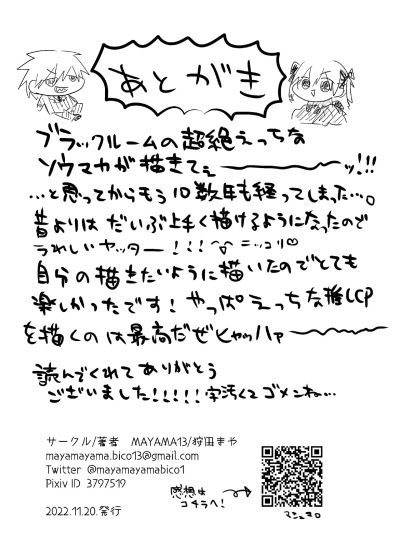 あとがき
ブラックルームの超絶えっちな
ソウマカが描きてぇ〜〜〜ッ!!!
…と思ってからもう10数年も経ってしまった…。
昔よりは だいぶ上手く描けるようになったので
うれしいヤッター!!! ニッコリ♡
自分の描きたいように描いたのでとても
楽しかったです! やっぱえっちな推しCP
を描くのは最高だぜヒャッハァ〜〜〜
読んでくれてありがとう
ございました!!!!! 字汚くてゴメンね…
サークル/著者 MAYAMA13/狩田まや
mayamayama.bico13@gmail.com
Twitter @mayamayamabico1
Pixiv ID 3797519
2022.11.20.発行
感想は
コチラへ!
マシュマロ